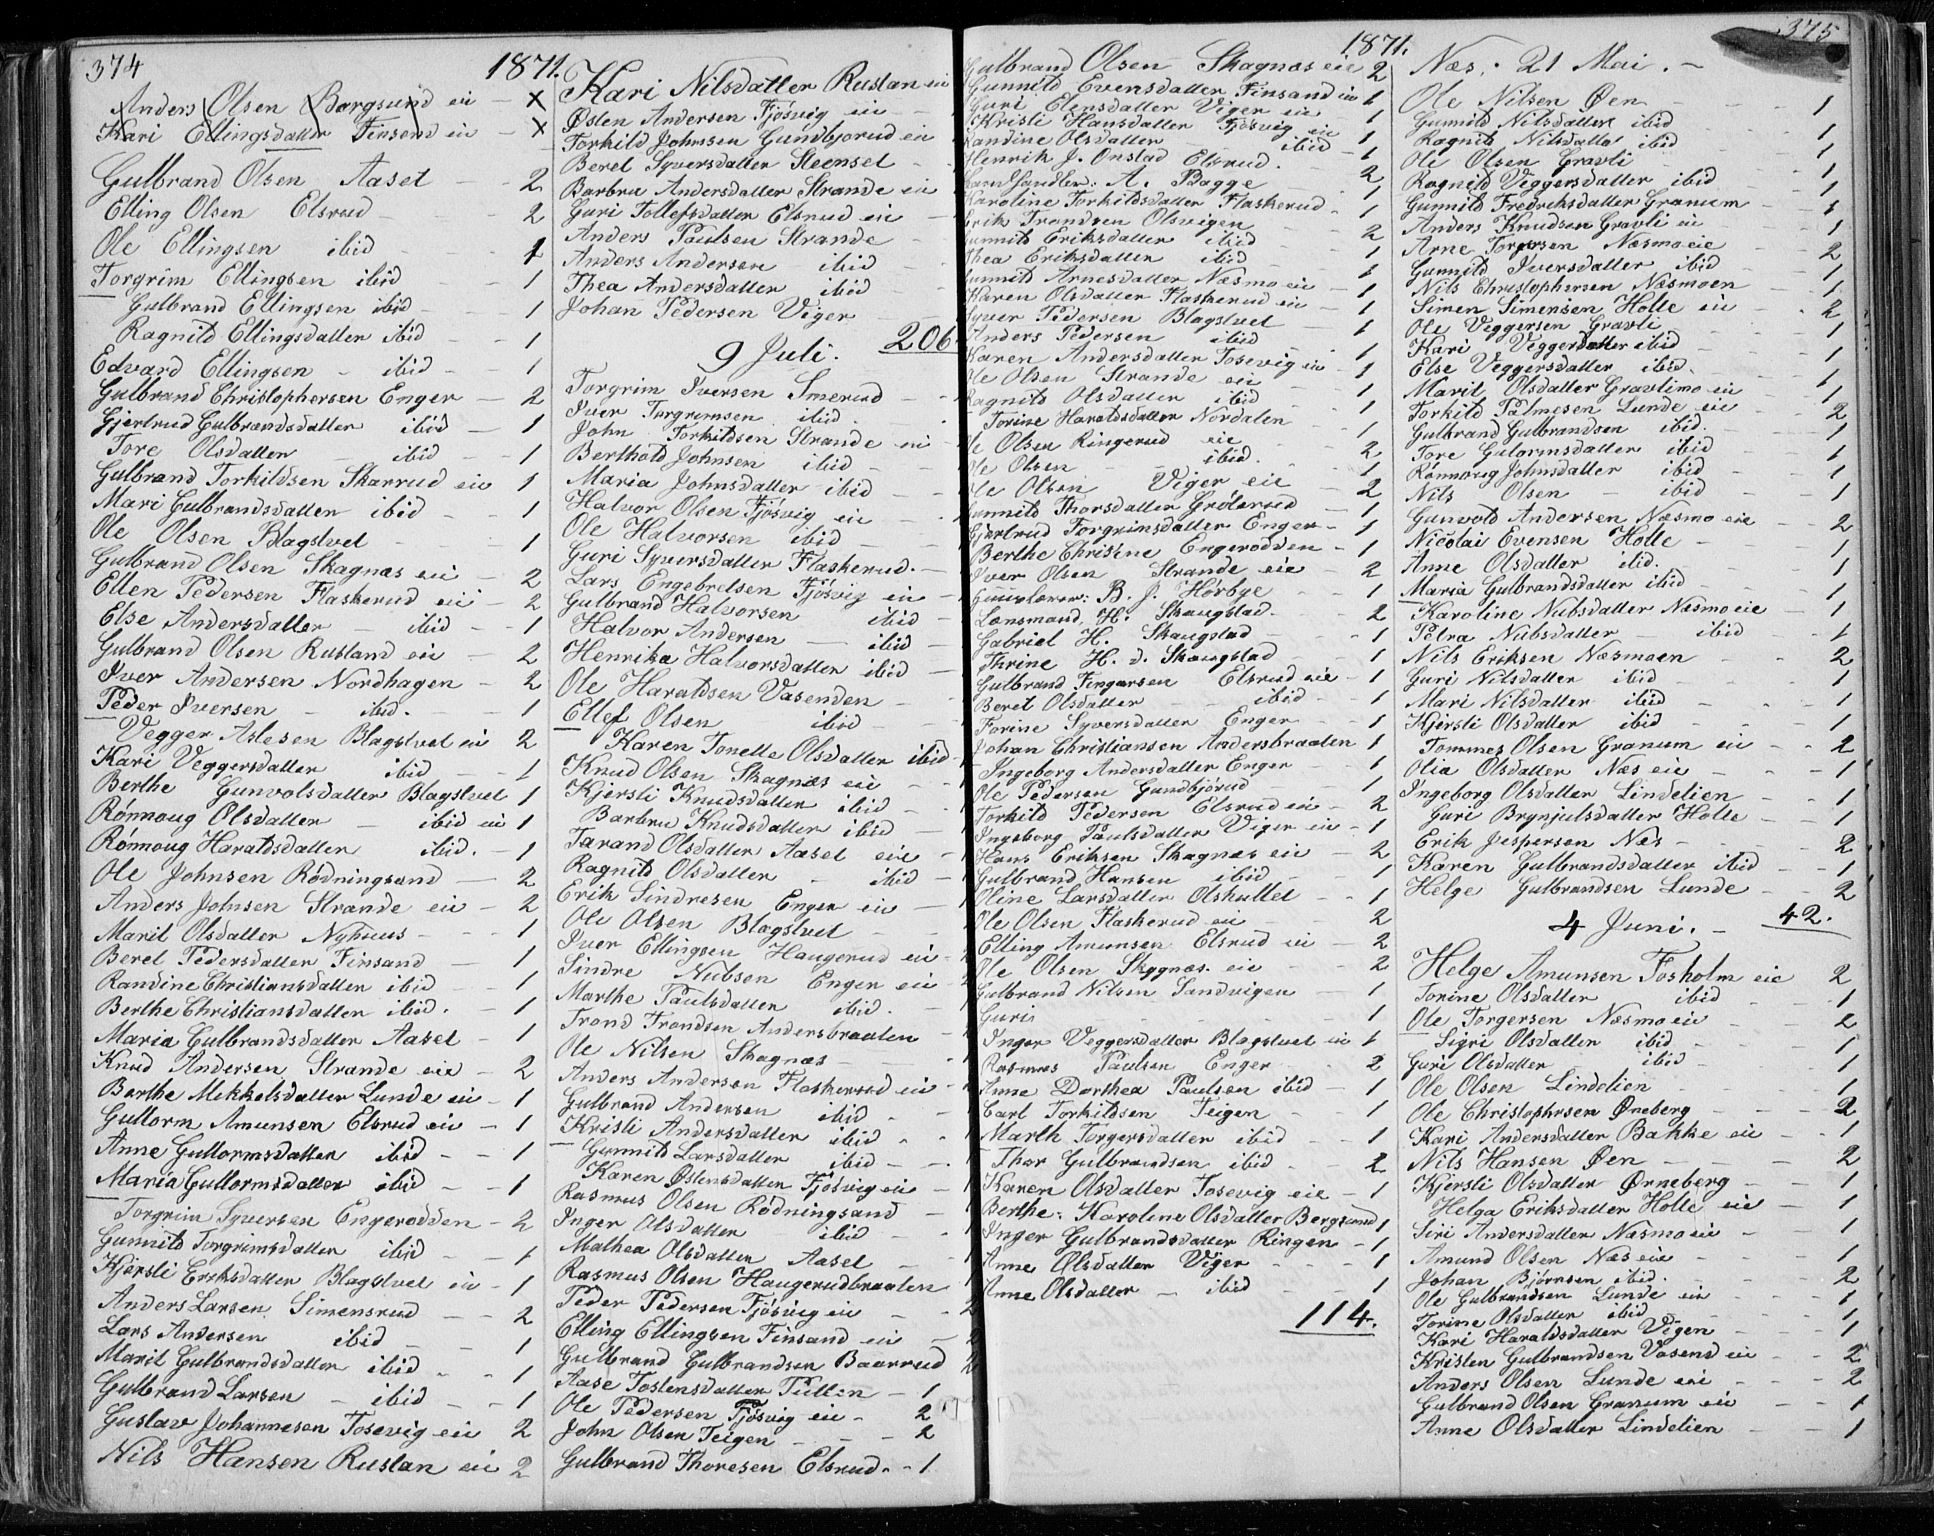 374
1871.
Anders Olsen Borgsund eie - x
Kari Ellingsdatter Finsand eie - x
Gulbrand Olsen Aaset - - 2
Elling Olsen Elsrud - - 2
Ole Ellingsen ibid - - 1
Torgrim Ellingsen ibid - - 1
Gulbrand Ellingsen ibid - - 1
Ragnild Ellingsdatter ibid - - 1
Edvard Ellingsen - ibid - - 1
Gulbrand Christophersen Enger - 2
Gjertrud Gulbrandsdatter ibid - 1
Tore Olsdatter - ibid - - 1
Gulbrand Torkildsen Skarrud eie 1
Mari Gulbrandsdatter ibid - - 1
Ole Olsen Blagstvet - - - 1
Gulbrand Olsen Skagnæs eie - 2
Ellen Pedersen Flaskerud eie - 2
Else Andersdatter - ibid - - 1
Gulbrand Olsen Rustand eie - 2
Iver Andersen Nordhagen - 2
Peder Iversen - ibid. - 1
Vegger Aslesen Blagstvet eie 2
Kari Veggersdatter ibid - - 1
Berthe Gunvolsdatter Blagstvet 1
Rønnoug Olsdatter - ibid eie 1
Rønnoug Haraldsdatter ibid. - 1
Ole Johnsen Rødningsand - 2
Anders Johnsen Strande eie - 2
Marit Olsdatter Nyhuus - - - 1
Beret Pedersdatter Finsand - 1
Randine Christiansdatter ibid - - 1
Berthe Christiansdatter ibid. - 1
Maria Gulbrandsdatter Aaset - 1
Knud Andersen Strande eie - 2
Berthe Mekkelsdatter Lunde eie - 1
Guttorm Amunsen Elsrud eie - 1
Anne Guttormsdatter ibid - - 1
Maria Guttormsdatter ibid - - 1
Torgrim Syversen Engerodden - 2
Gunnild Torgrimsdatter ibid - - 1
Kjersti Eriksdatter Blagstvet eie - 1
Anders Larsen Simensrud - - 2
Lars Andersen ibid - - 1
Marit Gulbrandsdatter ibid - - 1
Gulbrand Larsen - ibid - - 1
Gustav Johannesen Tosevig eie 2
Nils Hansen Rustan eie 2
Kari Nilsdatter Rustan eie
Østen Andersen Fjøsvig eie -
Torkild Johnsen Gundbjorud eie
Beret Syversdatter Steenset - -
Barbru Andersdatter Strande eie
Guri Tollefsdatter Elsrud eie -
Anders Paulsen Strande - -
Anders Andersen ibid - -
Thea Andersdatter ibid - -
Johan Pedersen Viger - -
206
9 Juli.
Torgrim Iversen Smerud - -
Iver Torgrimsen ibid - -
John Torkildsen Strande eie -
Berthold Johnsen ibid - -
Maria Johnsdatter ibid - -
Halvor Olsen Fjøsvig eie - -
Ole Halvorsen ibid - -
Guri Syversdatter Flaskerud. -
Lars Engebretsen Fjøsvig eie -
Gulbrand Halvorsen ibid -
Halvor Andersen - ibid -
Henrika Halvorsdatter ibid -
Ole Haraldsen Vasenden -
Ellef Olsen ibid - -
Karen Tonette Olsdatter ibid -
Knud Olsen Skagnæs eie - -
Kjersti Knudsdatter ibid -
Barbru Knudsdatter ibid -
Tarand Olsdatter Aaset eie -
Ragnild Olsdatter - ibid -
Erik Sindresen Enger eie -
Ole Olsen Blagstvet - -
Iver Ellingsen Haugerud eie -
Sindre Nubsen Enger eie -
Marthe Paulsdatter ibid. -
Trond Trondsen Andersbraaten
Ole Nilsen Skagnæs - - -
Anders Andersen Flaskerud eie -
Gulbrand Andersen ibid - -
Kristi Andersdatter ibid - -
Gunnild Larsdatter ibid - -
Karen Østensdatter Fjøsvig eie -
Rasmus Olsen Rødningsand -
Inger Olsdatter ibid - -
Mathea Olsdatter Aaset - -
Rasmus Olsen Haugerudbraaten
Peder Pedersen Fjøsvig eie -
Elling Ellingsen Finsand eie -
Gulbrand Gulbrandsen Baarrud
Aase Tostensdatter Pütten - 1
Ole Pedersen Fjøsvig eie - 2
John Olsen Teigen - - - 2
Gulbrand Thoresen Elsrud. - 1
1871.
Gulbrand Olsen Skagnæs eie 2
Gunnild Evensdatter Finsand eie 1
Guri Elensdatter Viger eie - 1
Kristi Hansdatter Fjøsvig eie 1
Randine Olsdatter - ibid - 1
Henrik J. Onstad Elsrud. - 2
Karnhandler: A. Bagge - 1
Karoline Torkildsdatter Flaskerud - 1
Erik Trondsen Olsvigen - - 2
Gunnild Eriksdatter ibid - - 1
Thea Eriksdatter ibid - - 1
Gunnild Arnesdatter Næsmo eie - 1
Karen Olsdatter Flaskerud eie - 1
Syver Pedersen Blagstvet - 1
Anders Pedersen ibid - - 1
Karen Andersdatter Tosevig eie - 1
Ole Olsen Strande eie - -
Ragnild Olsdatter ibid - - 1
Torine Haraldsdatter Nordalen - 1
Ole Olsen Ringerud eie - 2
Ole Olsen - ibid. - 1
Ole Olsen Viger eie - 2
Gunnild Thorsdatter Grøterud - 1
Gjertrud Torgrimsdatter Enger - 1
Berthe Christine Engerodden - 1
Iver Olsen Strande eie - 2
B. J. Hørbye - - 1
Lænsmand, H. Skaugstad. - 2
Gabriel H. Skaugstad - - 1
Thrine H. d. Skaugstad - - 1
Gulbrand Fingarsen Elsrud eie - 1
Beret Olsdatter - ibid - 1
Torine Syversdatter Enger - - 1
Johan Christiansen Andersbraaten 1
Ingeborg Andersdatter Enger - - 1
Ole Pedersen Gundbjørud - - 1
Torkild Pedersen Elsrud eie - 2
Ingeborg Paulsdatter Viger eie - 1
Hans Eriksen Skagnæs eie - 2
Gulbrand Hansen ibid - - 1
Oline Larsdatter Olshullet - - 1
Ole Olsen Flaskerud eie - - 2
Elling Amunsen Elsrud eie - 2
Ole Olsen Skagnæs eie - - 2
Gulbrand Nilsen Sandvigen - 1
Guri - - - - - 1
Inger Veggersdatter Blagstvet eie 1
Rasmus Paulsen Enger - - 2
Anne Dorthea Paulsen ibid - 1
Carl Torkildsen Teigen - - 1
Marth Torgersdatter ibid - - 1
Thor Gulbrandsen ibid - - 2
Karen Olsdatter Tosevig eie - 1
Berthe: Karoline Olsdatter Bergsund 1
Inger Gulbrandsdatter Ringen - 1
Anne Olsdatter Viger - - - 1
Anne Olsdatter - ibid - - 1
114.
375
Næs. 21 Mai. -
Ole Nilsen Øen - - - 1
Gunnild Nilsdatter ibid - - 1
Ragnild Nilsdatter ibid - - 1
Ole Olsen Gravli - - - 1
Ragnild Veggersdatter ibid - - 1
Gunnild Fredriksdatter Granum - 1
Anders Knudsen Gravli eie - 1
Arne Torgersen Næsmo eie - 2
Gunnild Iversdatter ibid - - 1
Nils Christophersen Næsmoen - 1
Simen Simensen Holte eie - 2
Ole Veggersen Gravli - - 1
Kari Veggersdatter ibid - - 1
Else Veggersdatter ibid. - - 1
Marit Olsdatter Gravlimo eie - 1
Torkild Palmesen Lunde eie - 2
Gulbrand Gulbrandsen ibid. - 1
Tore Gulormsdatter ibid - 1
Rønnoug Johnsdatter ibid - - 1
Nils Olsen - ibid - - 1
Gunvold Andersen Næsmo eie - 2
Nicolai Evensen Holte - - 1
Anne Olsdatter ibid. - - 1
Maria Gulbrandsdatter ibid - 1
Karoline Nubsdatter Næsmo eie - 1
Petra Nubsdatter - ibid - 1
Nils Eriksen Næsmoen - - 2
Guri Nilsdatter ibid - - 1
Mari Nilsdatter ibid - - 1
Kjersti Olsdatter ibid - - 1
Tommes Olsen Granum eie - - 2
Olia Olsdatter Næs eie - - 1
Ingeborg Olsdatter Lindelien - - 1
Guri Brynjulsdatter Holte - - 1
Erik Jespersen Næs - - - 2
Karen Gulbrandsdatter ibid - - 1
Helge Gulbrandsen Lunde - - 2
42.
4 Juni. -
Helge Amunsen Fosholm eie 2
Torine Olsdatter ibid - - 1
Ole Torgersen Næsmo eie - - 2
Sigri Olsdatter ibid - - 1
Guri Olsdatter ibid - - 1
Ole Olsen Lindelien - - 1
Ole Christophersen Ørneberg - - 2
Kari Andersdatter Bakke eie - - 1
Nils Hansen Øen - - - 2
Kjersti Olsdatter Ørneberg - - 1
Helga Eriksdatter Holte eie - 1
Siri Andersdatter Næsmo eie - 1
Amund Olsen Næs eie - - 1
Johan Bjørnsen ibid. - - 2
Ole Gulbrandsen Lunde eie - - 1
Torine Olsdatter ibid - - 1
Kari Haraldsdatter Vigen - - 1
Kristen Gulbrandsen Vasend eie - 2
Anders Olsen Lunde eie - - 2
Gulbrand Olsen Granum eie - - 1
Anne Olsdatter Lindelien - - 1